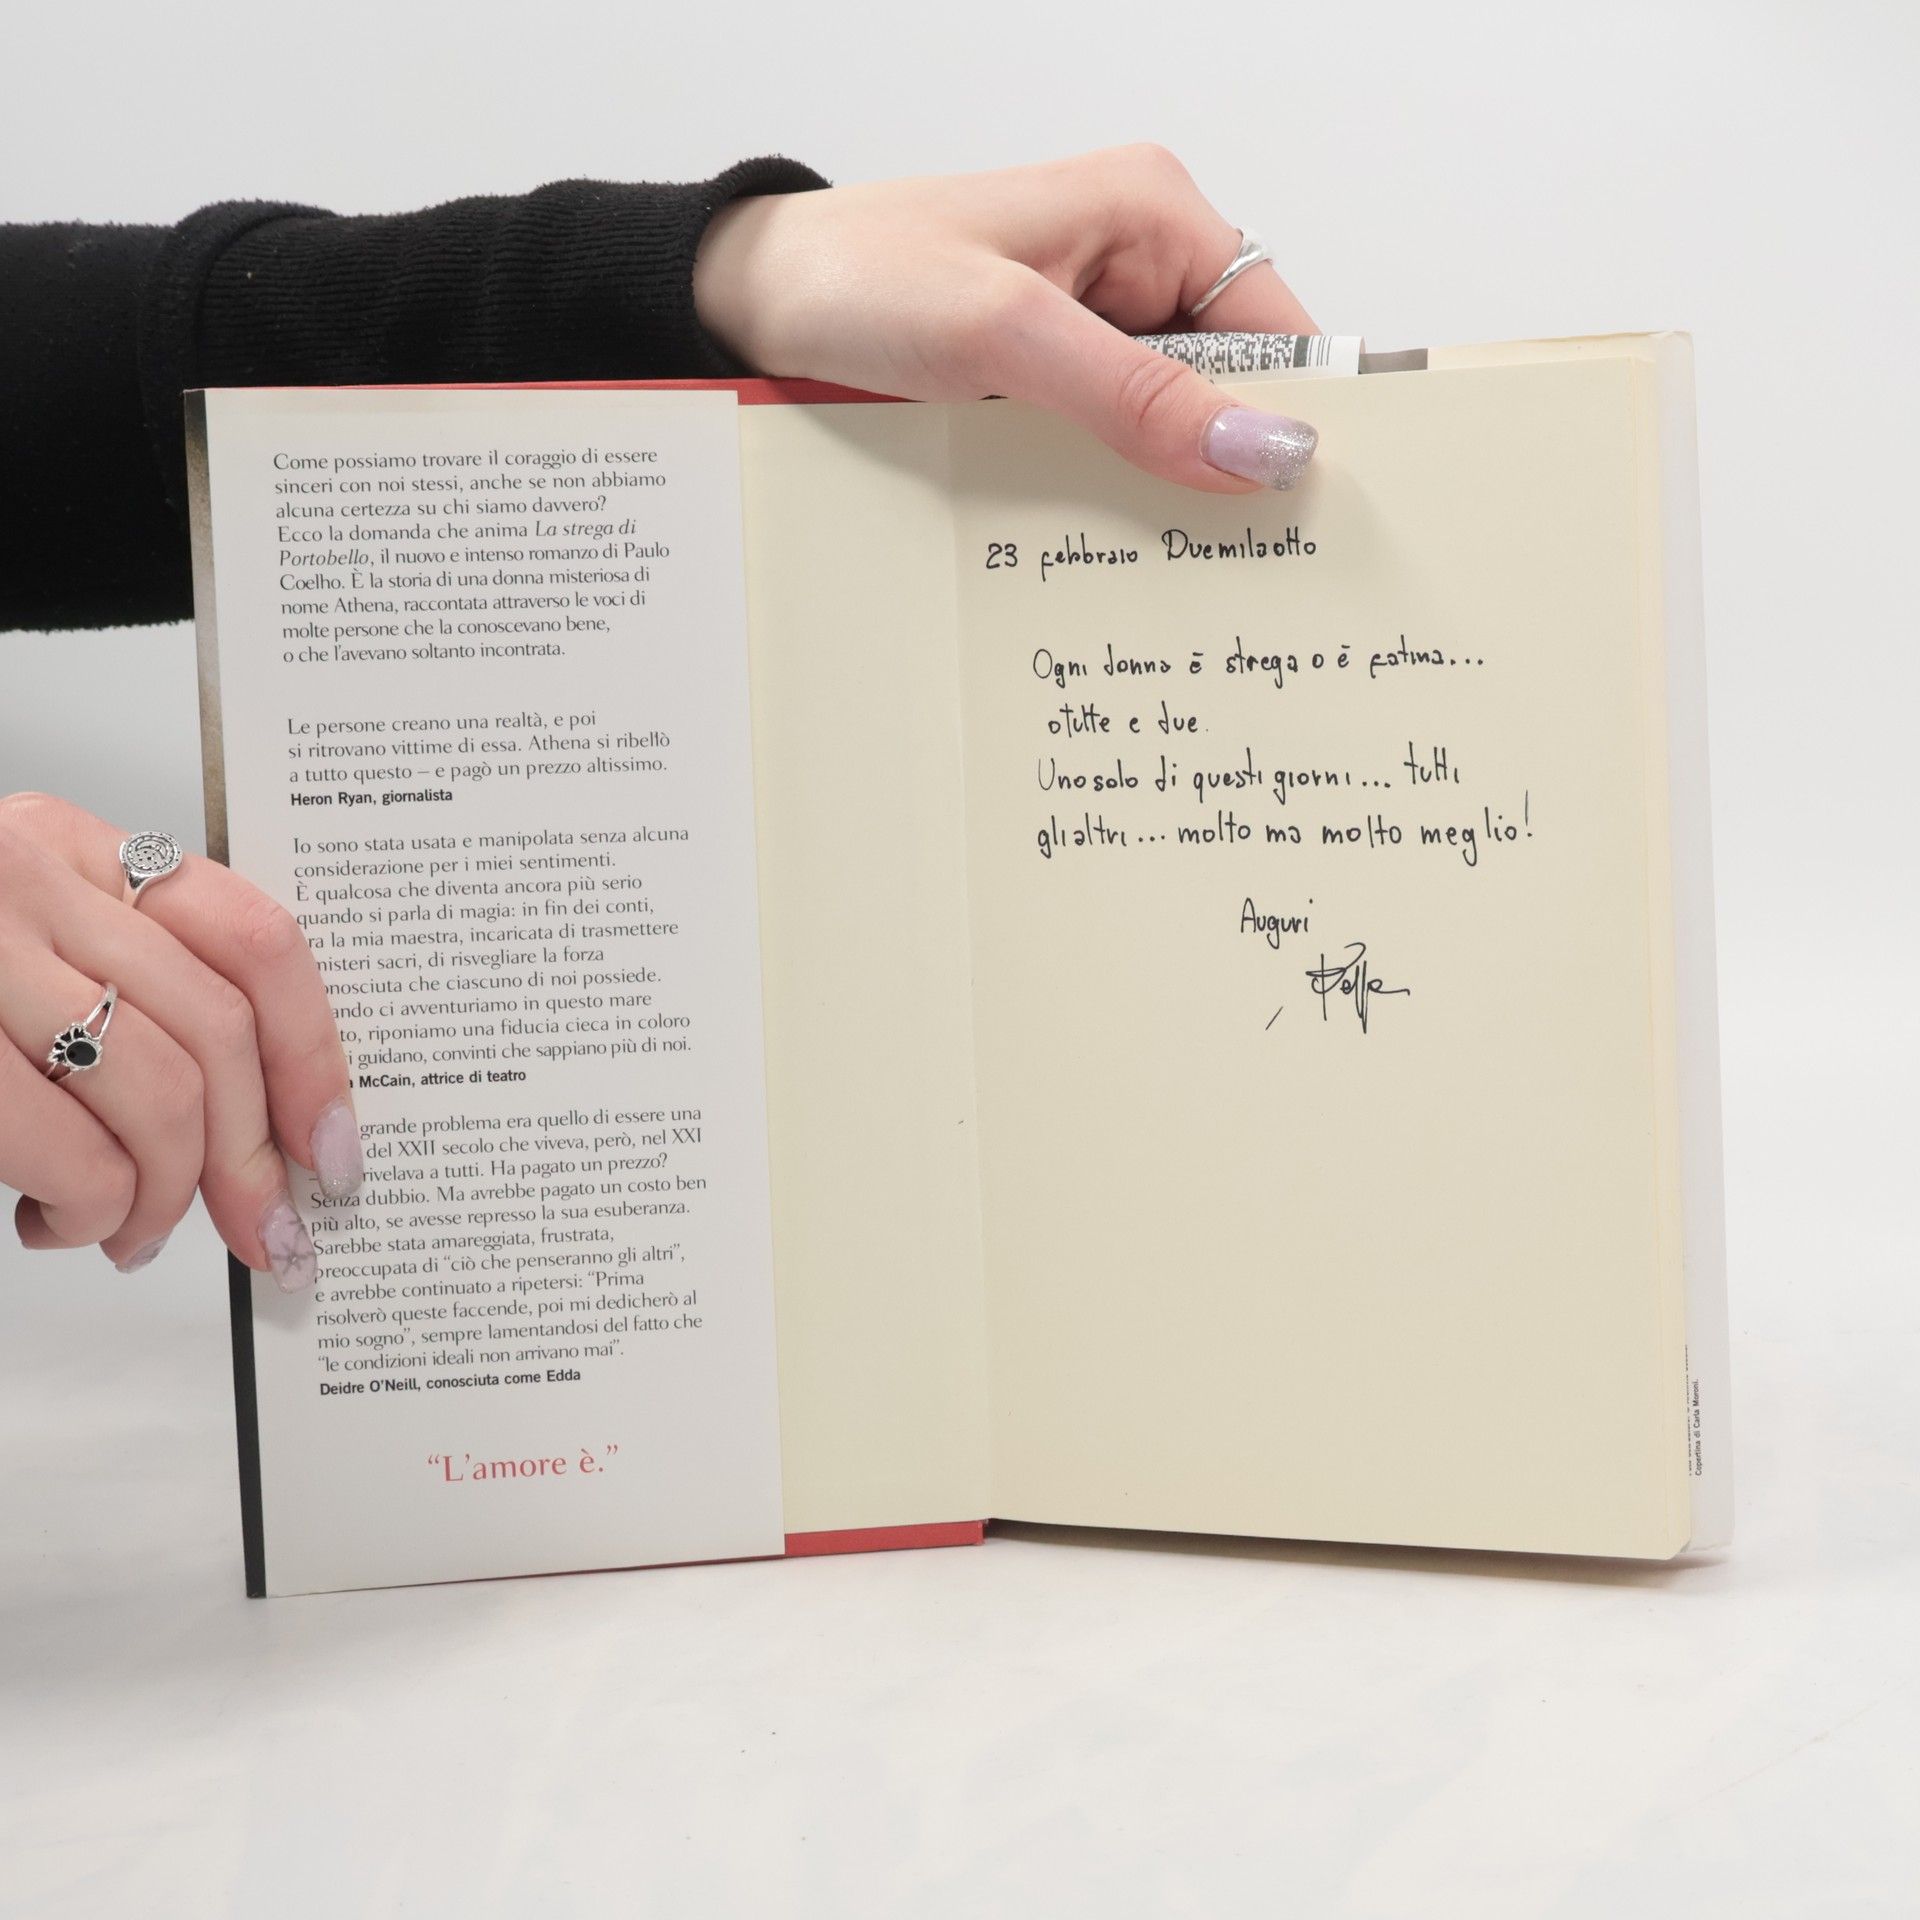 Come possiamo trovare il coraggio di essere
sinceri con noi stessi, anche se non abbiamo
alcuna certezza su chi siamo davvero?
Ecco la domanda che anima La strega di
Portobello, il nuovo e intenso romanzo di Paulo
Coelho. È la storia di una donna misteriosa di
nome Athena, raccontata attraverso le voci di
molte persone che la conoscevano bene,
o che l'avevano soltanto incontrata.
Le persone creano una realtà, e poi
si ritrovano vittime di essa. Athena si ribellò
a tutto questo – e pagò un prezzo altissimo.
Heron Ryan, giornalista
Io sono stata usata e manipolata senza alcuna
considerazione per i miei sentimenti.
È qualcosa che diventa ancora più serio
quando si parla di magia: in fin dei conti,
ra la mia maestra, incaricata di trasmettere
misteri sacri, di risvegliare la forza
onosciuta che ciascuno di noi possiede.
ando ci avventuriamo in questo mare
to, riponiamo una fiducia cieca in coloro
i guidano, convinti che sappiano più di noi.
a McCain, attrice di teatro
grande problema era quello di essere una
del XXII secolo che viveva, però, nel XXI
rivelava a tutti. Ha pagato un prezzo?
Senza dubbio. Ma avrebbe pagato un costo ben
più alto, se avesse represso la sua esuberanza.
Sarebbe stata amareggiata, frustrata,
preoccupata di “ciò che penseranno gli altri”,
e avrebbe continuato a ripetersi: “Prima
risolverò queste faccende, poi mi dedicherò al
mio sogno”, sempre lamentandosi del fatto che
“le condizioni ideali non arrivano mai”.
Deidre O'Neill, conosciuta come Edda
“L'amore è.”
23 febbraio Duemilaotto
Ogni donna è strega o è fatina...
o tutte e due.
Uno solo di questi giorni... tutti
gli altri... molto ma molto meglio!
Auguri
Copertina di Carla Moroni.